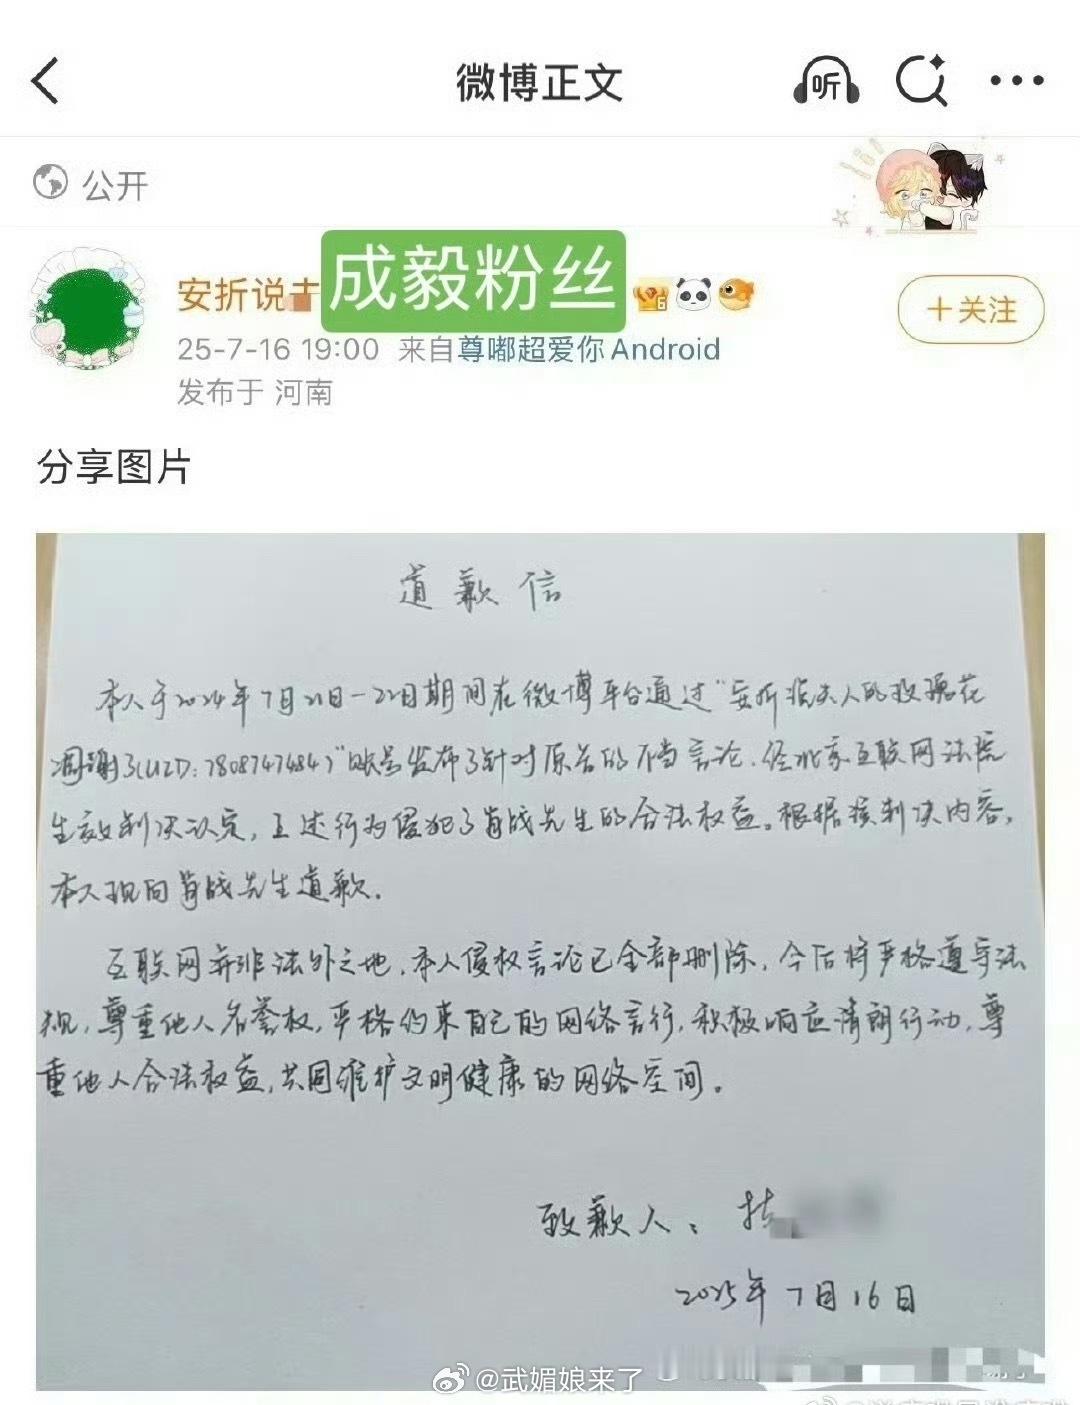 微博正文
听
公开
安折说
成毅粉丝
6
25-7-16 19:00 来自尊嘟超爱你Android
发布于 河南
+关注
分享图片
道歉信
本人于2024年7月21日-22日期间在微博平台通过"安折说夫人的玫瑰花
凋谢了(UID:7808747484)"账号发布了针对原告的不当言论,经北京互联网法院
生效判决认定,上述行为侵犯了肖战先生的合法权益。根据该判决内容,
本人现向肖战先生道歉.
互联网并非法外之地,本人侵权言论已全部删除,今后将严格遵守法
规,尊重他人名誉权,严格约束自己的网络言行,积极响应清朗行动,尊
重他人合法权益,共同维护文明健康的网络空间。
致歉人:
2025年7月16日
@武媚娘来了